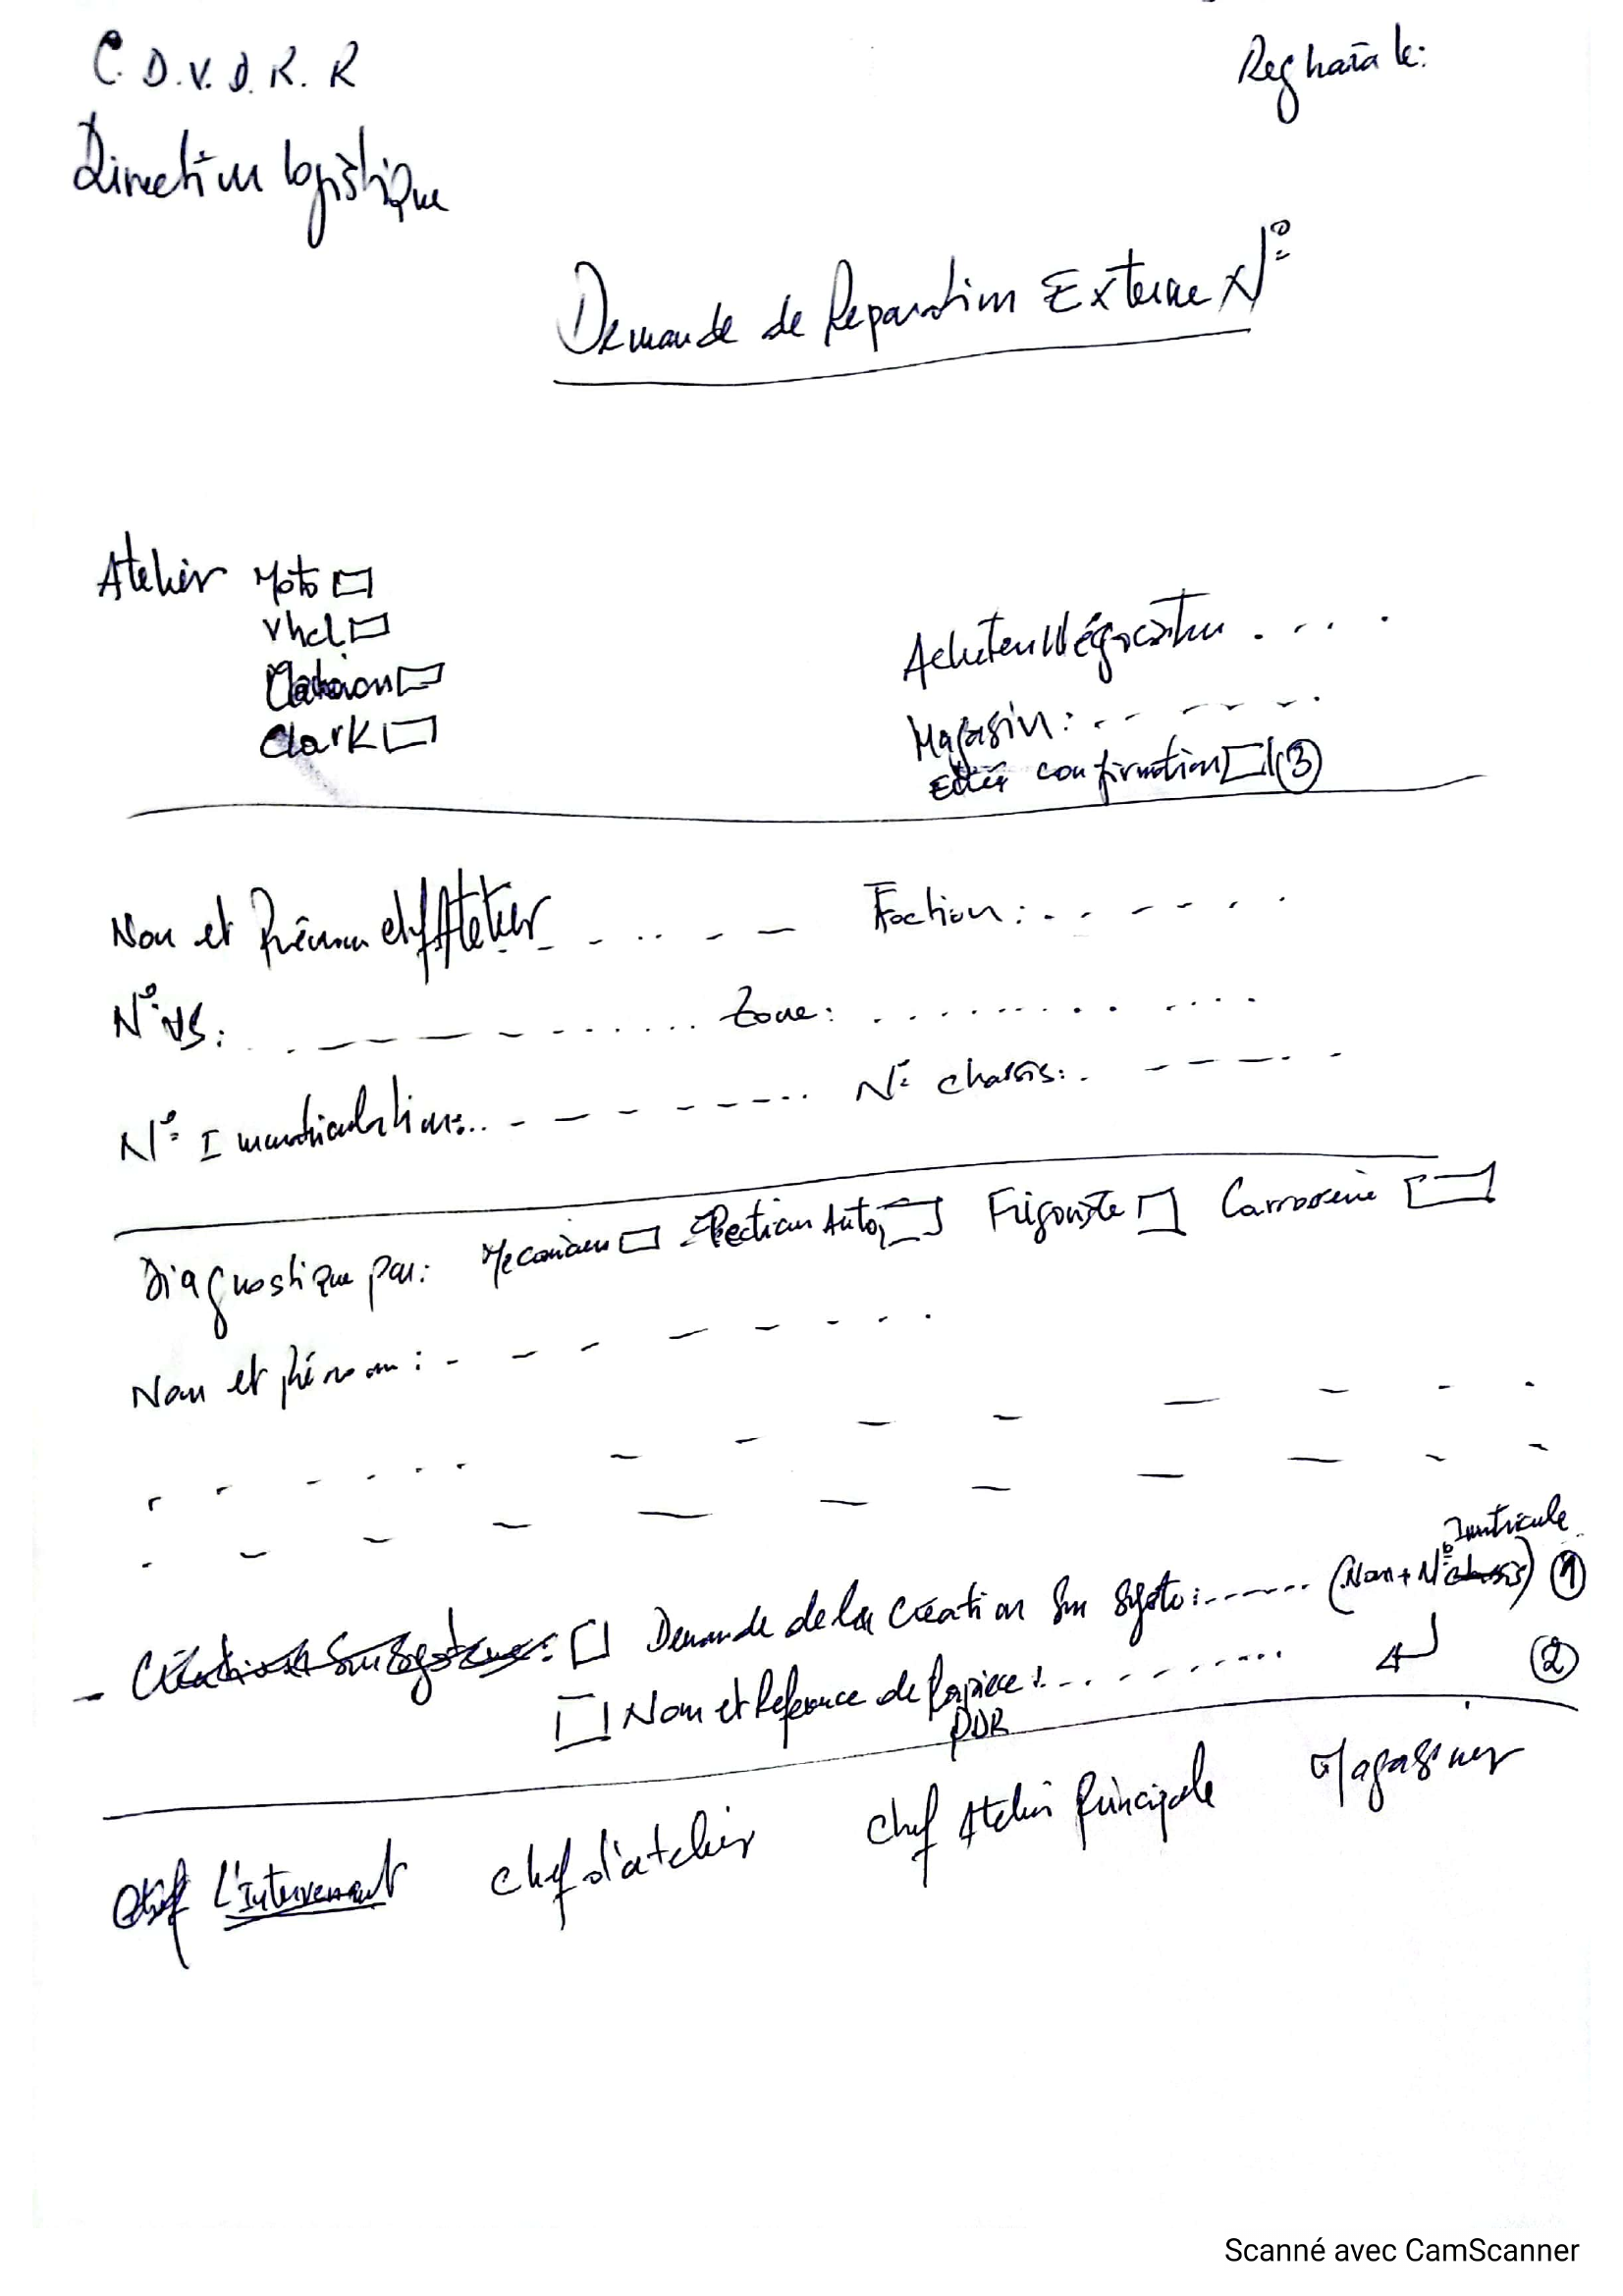 C. D.V.D.R.R
Reghaia le:
Direction logistique
Demande de Reparation Externe N°
Atelier Moto
Vhcl
Clark
Acheteur Négociateur . . . .
Magasin: . . . . . . .
confirmation 3
Nom et Prénom chef Atelier . . . . . . Foction: . . . . . . .
N° VS: . . . . . . . . . . . . Zone: . . . . . . . . . . . .
N° Immatriculation: . . . . . . . . . . . N° chassis: . . . . . . .
Diagnostique par: Mecanicien Electicien Auto Frigoriste Carrosserie
Nom et prénom: - - - - - - . . .
- Création Sur Système: Demande de la Création Sur Syste: ------- (Nom + N° chassis) 1
Imatricule
Nom et Reference de la piece: - - - - - - - - - 2
PDR
Chef L'Intervenant chef d'atelier chef Atelier Principale Magasinier
Scanné avec CamScanner